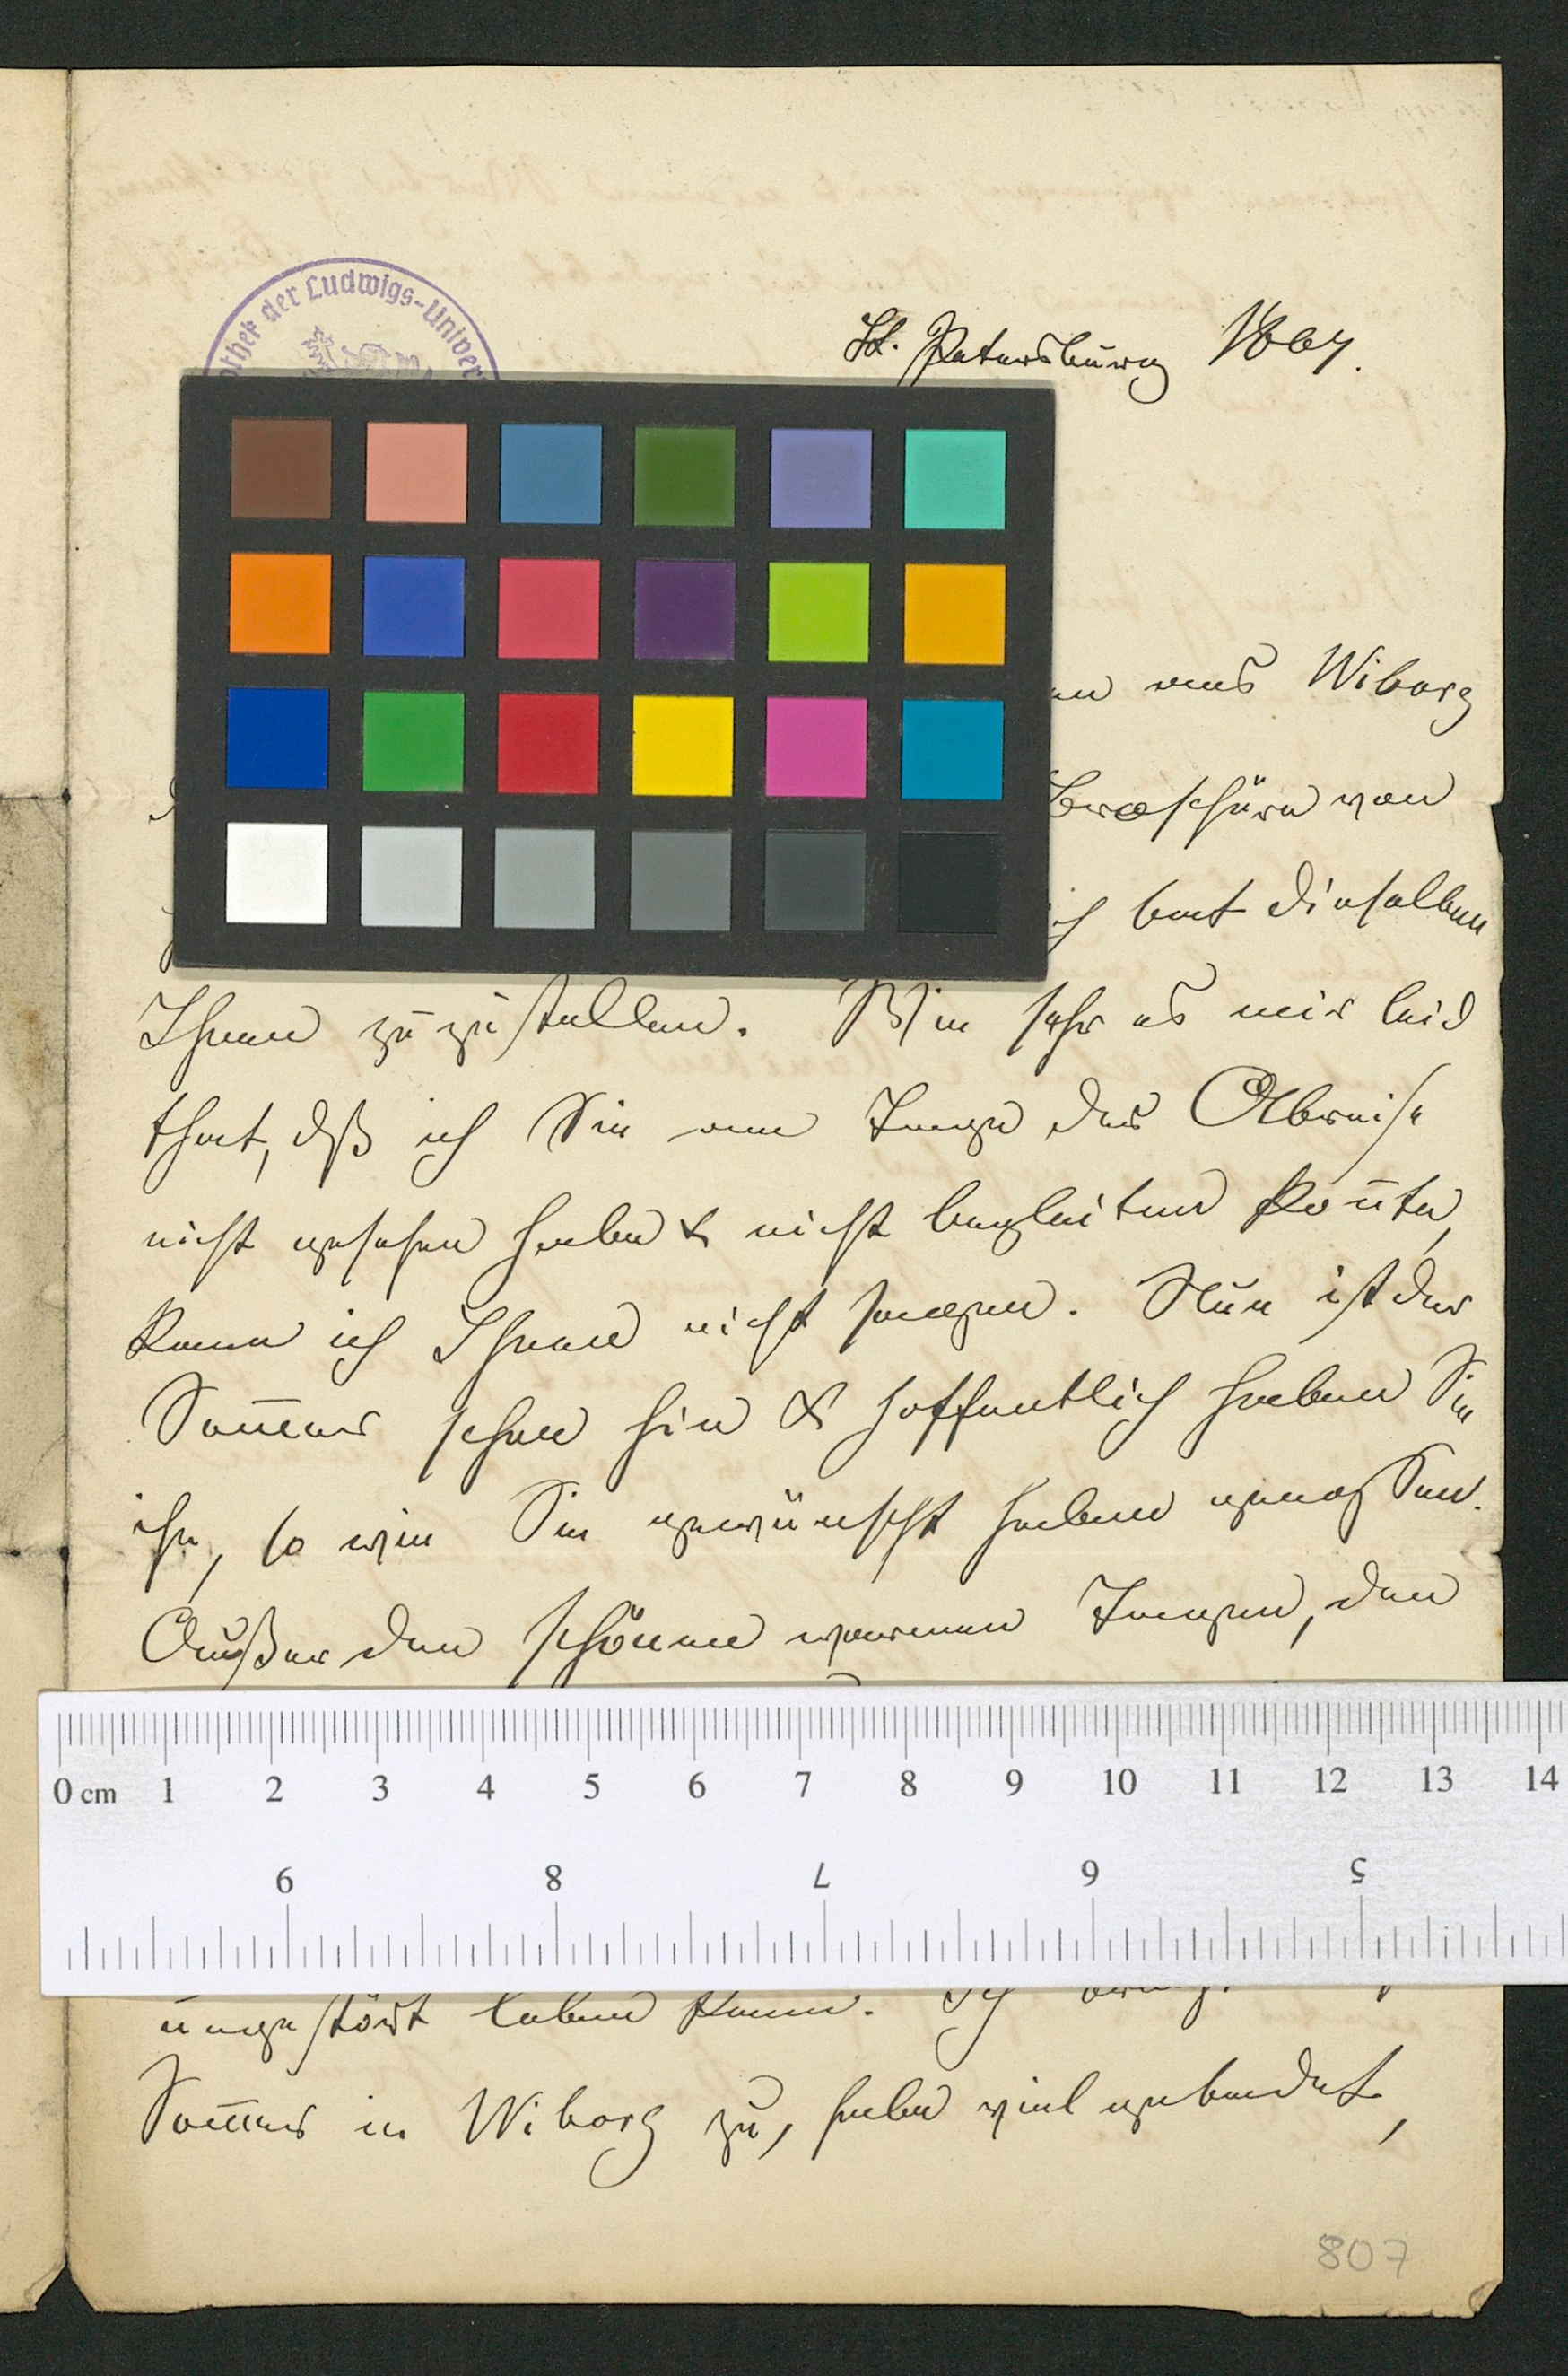 othek der Ludwigs-Univer
St. Petersburg 1867.
aus Wiborg
Broschüre von
ich bat dieselben
Ihnen zuzustellen. Wie sehr es mir leid
that, dß ich Sie am Tage der Abreise
nicht gesehen habe & nicht begleiten konnte,
kann ich Ihnen nicht sagen. Nun ist der
Sommer schon hin & hoffentlich haben Sie
ihn, so wie Sie gewünscht haben genossen.
Außer den schönen warmen Tagen, den
0 cm 1 2 3 4 5 6 7 8 9 10 11 12 13 14
9 8 7 6 5
ungestört leben kann. Ich
Sommer in Wiborg zu, habe viel gebadet,
807